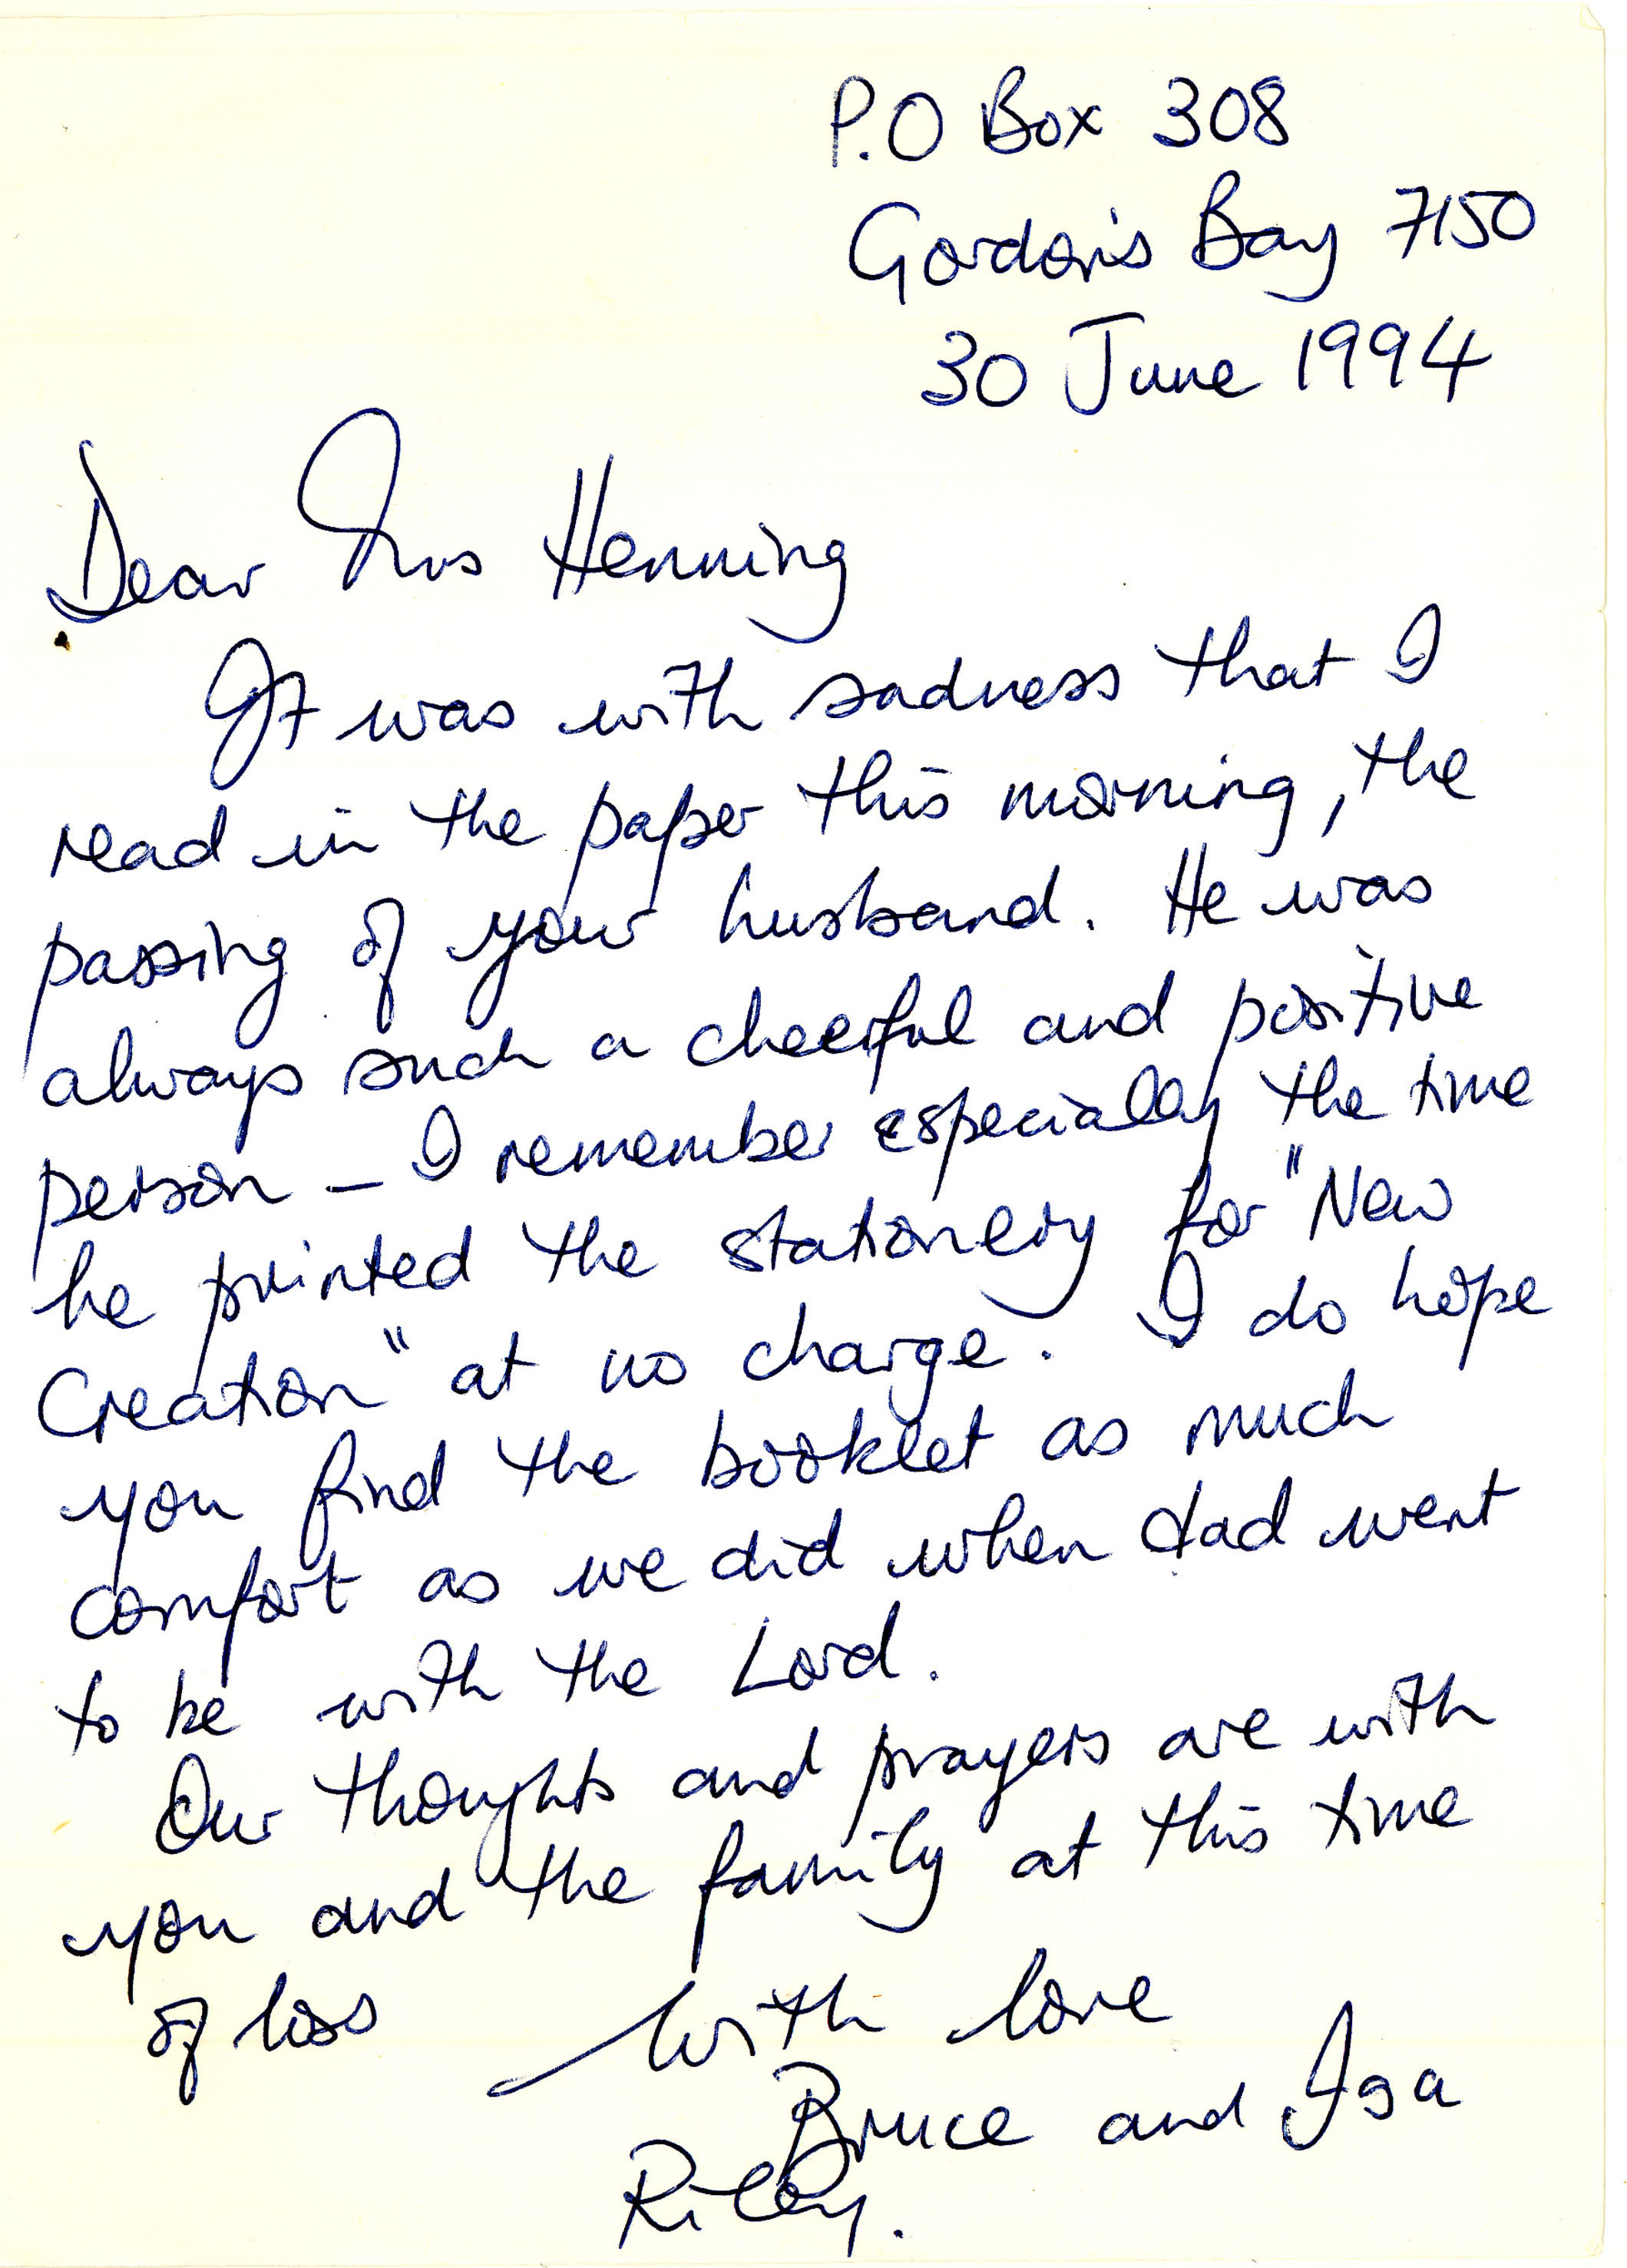 P.O Box 308
Gordon's Bay 7150
30 June 1994
Dear Mrs Henning
It was with sadness that I
read in the paper this morning, the
passing of your husband. He was
always such a cheerful and positive
person - I remember especially the time
he printed the stationery for "New
Creation" at no charge. I do hope
you find the booklet as much
comfort as we did when dad went
to be with the Lord.
Our thoughts and prayers are with
you and the family at this time
of loss
With love
Bruce and Isa
Riley.